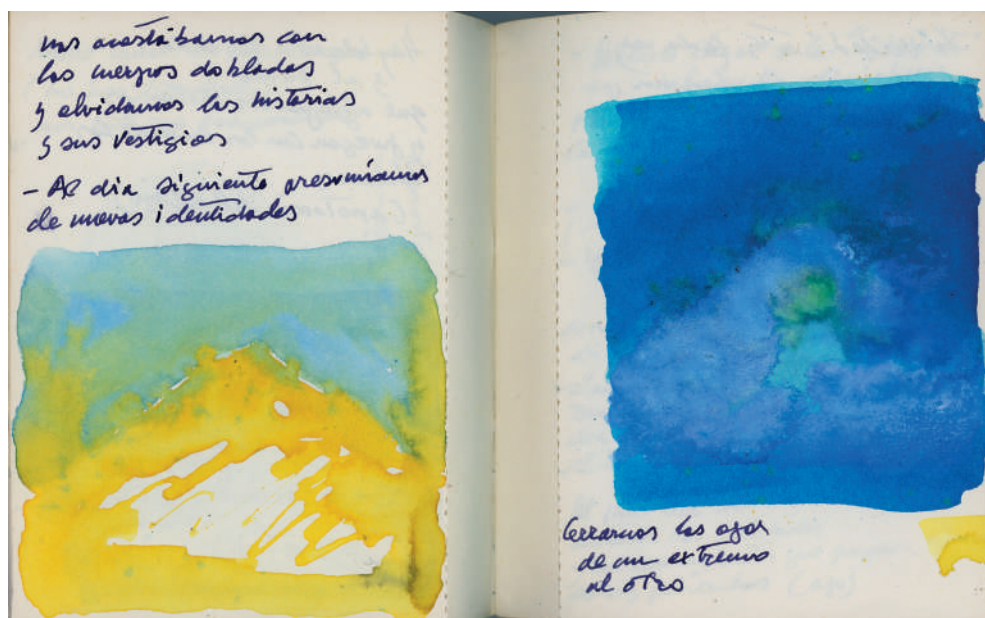 nos acostábamos con
los cuerpos doblados
y olvidamos las historias
y sus vestigios
- Al dia siguiente presumíamos
de nuevas identidades
Cerramos los ojos
de un extremo
al otro